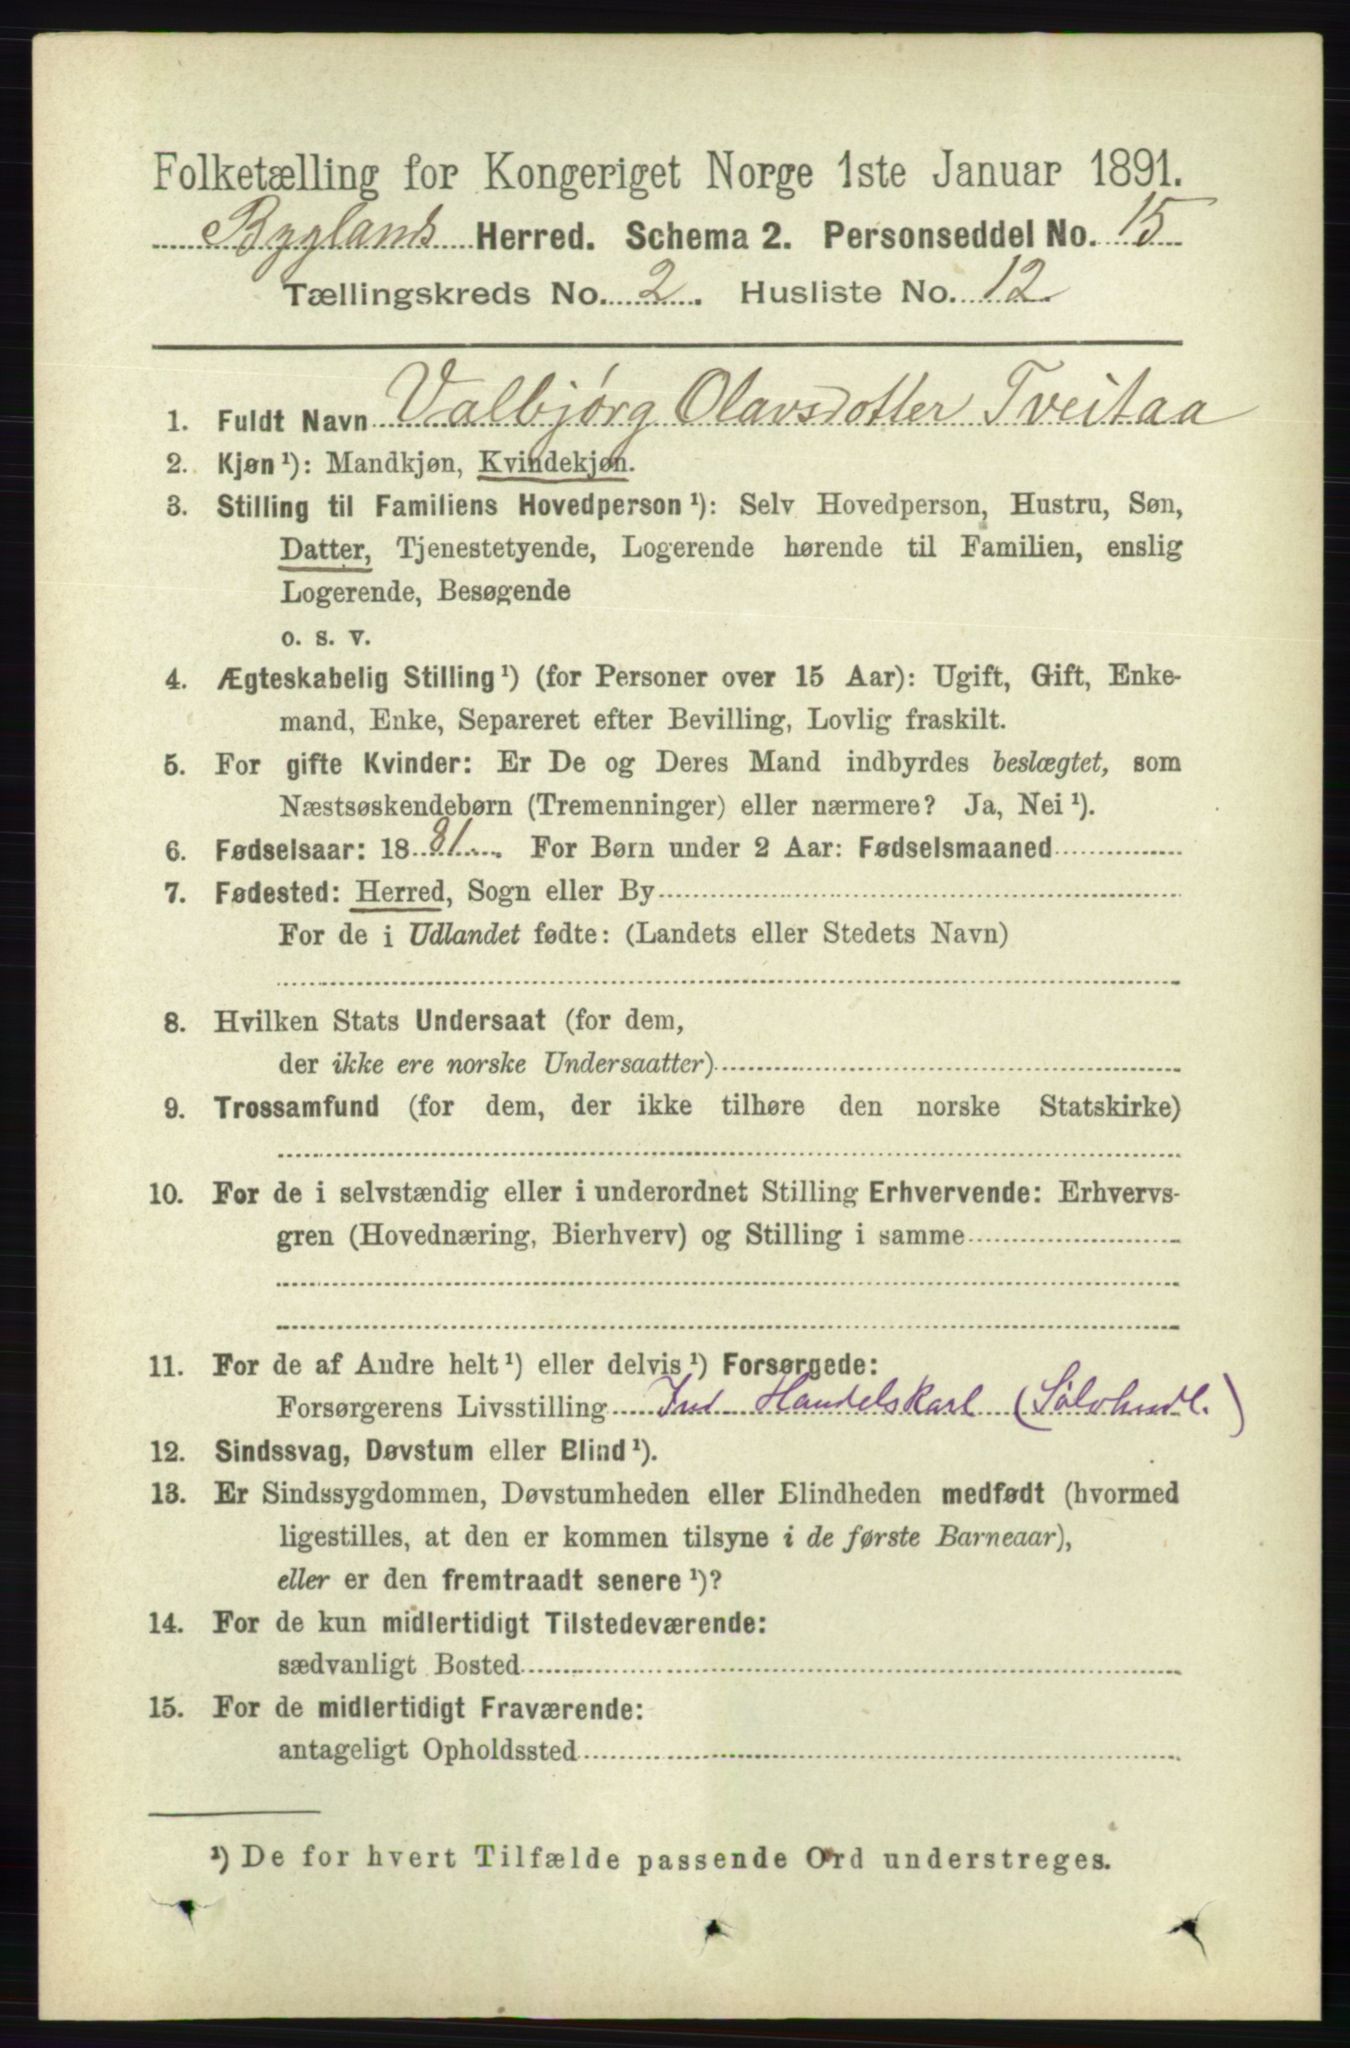 Folketælling for Kongeriget Norge 1ste Januar 1891.
Byglands Herred. Schema 2. Personseddel No. 15
Tællingskreds No. 2. Husliste No. 12.
1. Fuldt Navn Valbjørg Olavsdotter Tveitaa
2. Kjøn¹): Mandkjøn, Kvindekjøn.
3. Stilling til Familiens Hovedperson¹): Selv Hovedperson, Hustru, Søn,
Datter, Tjenestetyende, Logerende hørende til Familien, enslig
Logerende, Besøgende
o. s. v.
4. Ægteskabelig Stilling¹) (for Personer over 15 Aar): Ugift, Gift, Enke-
mand, Enke, Separeret efter Bevilling, Lovlig fraskilt.
5. For gifte Kvinder: Er De og Deres Mand indbyrdes beslægtet, som
Næstsøskendebørn (Tremenninger) eller nærmere? Ja, Nei¹).
6. Fødselsaar: 1881. For Børn under 2 Aar: Fødselsmaaned
7. Fødested: Herred, Sogn eller By
For de i Udlandet fødte: (Landets eller Stedets Navn)
8. Hvilken Stats Undersaat (for dem,
der ikke ere norske Undersaatter)
9. Trossamfund (for dem, der ikke tilhøre den norske Statskirke)
10. For de i selvstændig eller i underordnet Stilling Erhvervende: Erhvervs-
gren (Hovednæring, Bierhverv) og Stilling i samme
11. For de af Andre helt¹) eller delvis¹) Forsørgede:
Forsørgerens Livsstilling Ind Handelskarl (Sølvhndl.)
12. Sindssvag, Døvstum eller Blind¹).
13. Er Sindssygdommen, Døvstumheden eller Blindheden medfødt (hvormed
ligestilles, at den er kommen tilsyne i de første Barneaar),
eller er den fremtraadt senere¹)?
14. For de kun midlertidigt Tilstedeværende:
sædvanligt Bosted
15. For de midlertidigt Fraværende:
antageligt Opholdssted
¹) De for hvert Tilfælde passende Ord understreges.